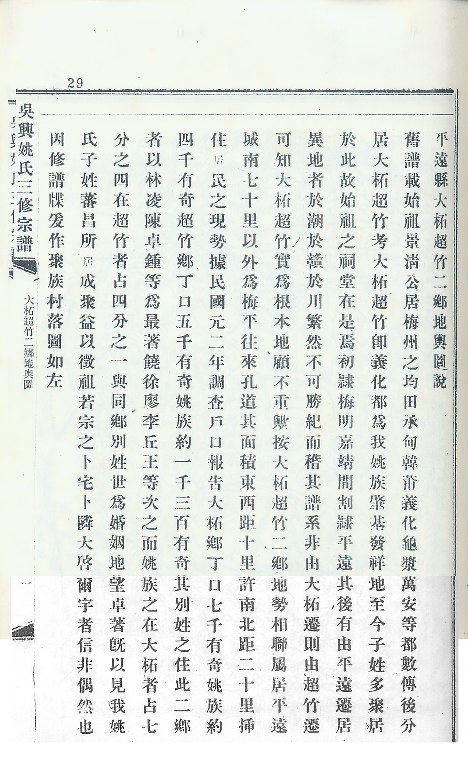 29
平遠縣大柘超竹二鄉地輿圖說
舊譜載始祖景清公居梅州之均田承甸韓莆義化龜漿萬安等都數傳後分
居大柘超竹考大柘超竹卽義化都爲我姚族肇基發祥地至今子姓多聚居
於此故始祖之祠堂在是焉初隸梅明嘉靖間割隸平遠其後有由平遠遷居
異地者於潮於贛於川繁然不可勝紀而稽其譜系非由大柘遷則由超竹遷
可知大柘超竹實爲根本地顧不重歟按大柘超竹二鄉地勢相聯屬居平遠
城南七十里以外爲梅平往來孔道其面積東西距十里許南北距二十里揷
住居民之現勢據民國元二年調查戶口報告大柘鄉丁口七千有奇姚族約
四千有奇超竹鄉丁口五千有奇姚族約一千三百有奇其別姓之住此二鄉
者以林凌陳卓鍾等爲最著饒徐廖李丘王等次之而姚族之在大柘者占七
分之四在超竹者占四分之一與同鄉別姓世爲婚姻地望卓著旣以見我姚
氏子姓蕃昌所居成聚益以徵祖若宗之卜宅卜隣大啓爾宇者信非偶然也
因修譜牒爰作聚族村落圖如左
吳興姚氏三修宗譜
大柘超竹二鄉地輿圖
一